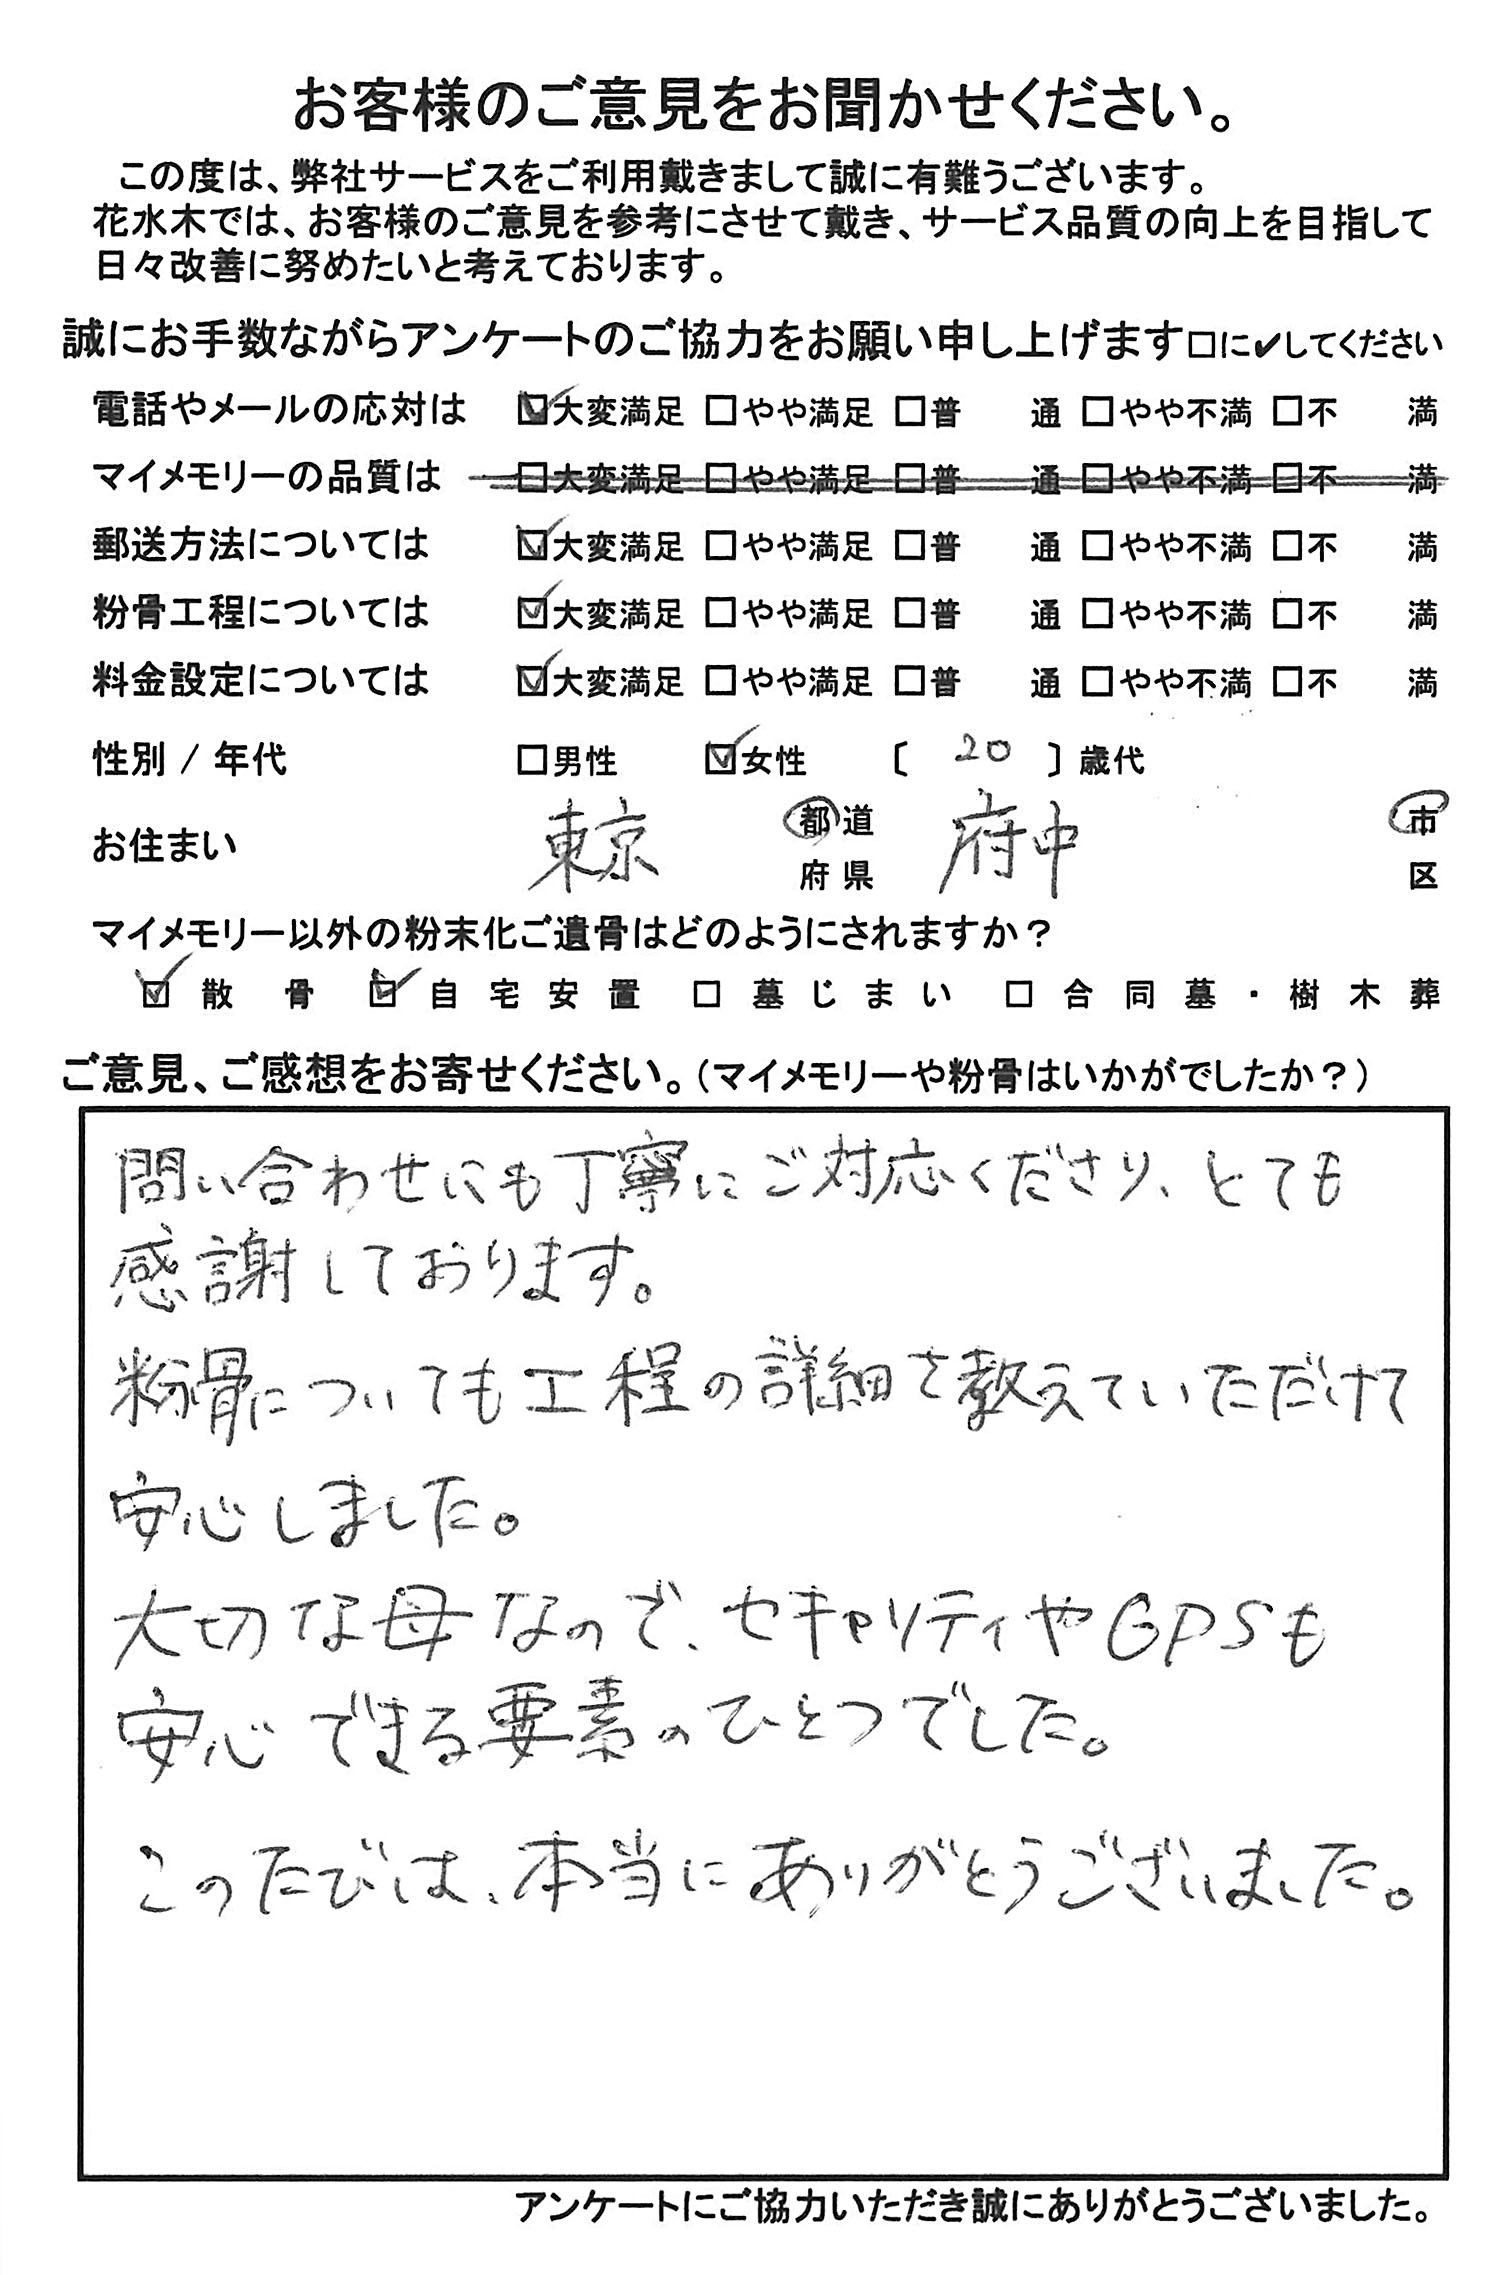 お客様のご意見をお聞かせください。
この度は、弊社サービスをご利用戴きまして誠に有難うございます。
花水木では、お客様のご意見を参考にさせて戴き、サービス品質の向上を目指して
日々改善に努めたいと考えております。
誠にお手数ながらアンケートのご協力をお願い申し上げます□に✔してください
電話やメールの応対は ☑大変満足 □やや満足 □普 通 □やや不満 □不 満
マイメモリーの品質は □大変満足 □やや満足 □普 通 □やや不満 □不 満
郵送方法については ☑大変満足 □やや満足 □普 通 □やや不満 □不 満
粉骨工程については ☑大変満足 □やや満足 □普 通 □やや不満 □不 満
料金設定については ☑大変満足 □やや満足 □普 通 □やや不満 □不 満
性別 / 年代 □男性 ☑女性 〔 20 〕歳代
お住まい 東京 都道府県 府中 市区
マイメモリー以外の粉末化ご遺骨はどのようにされますか？
☑散骨 ☑自宅安置 □墓じまい □合同墓・樹木葬
ご意見、ご感想をお寄せください。（マイメモリーや粉骨はいかがでしたか？）
問い合わせにも丁寧にご対応くださり、とても
感謝しております。
粉骨についても工程の詳細を教えていただけて
安心しました。
大切な母なので、セキャリティやGPSも
安心できる要素のひとつでした。
このたびは、本当にありがとうございました。
アンケートにご協力いただき誠にありがとうございました。